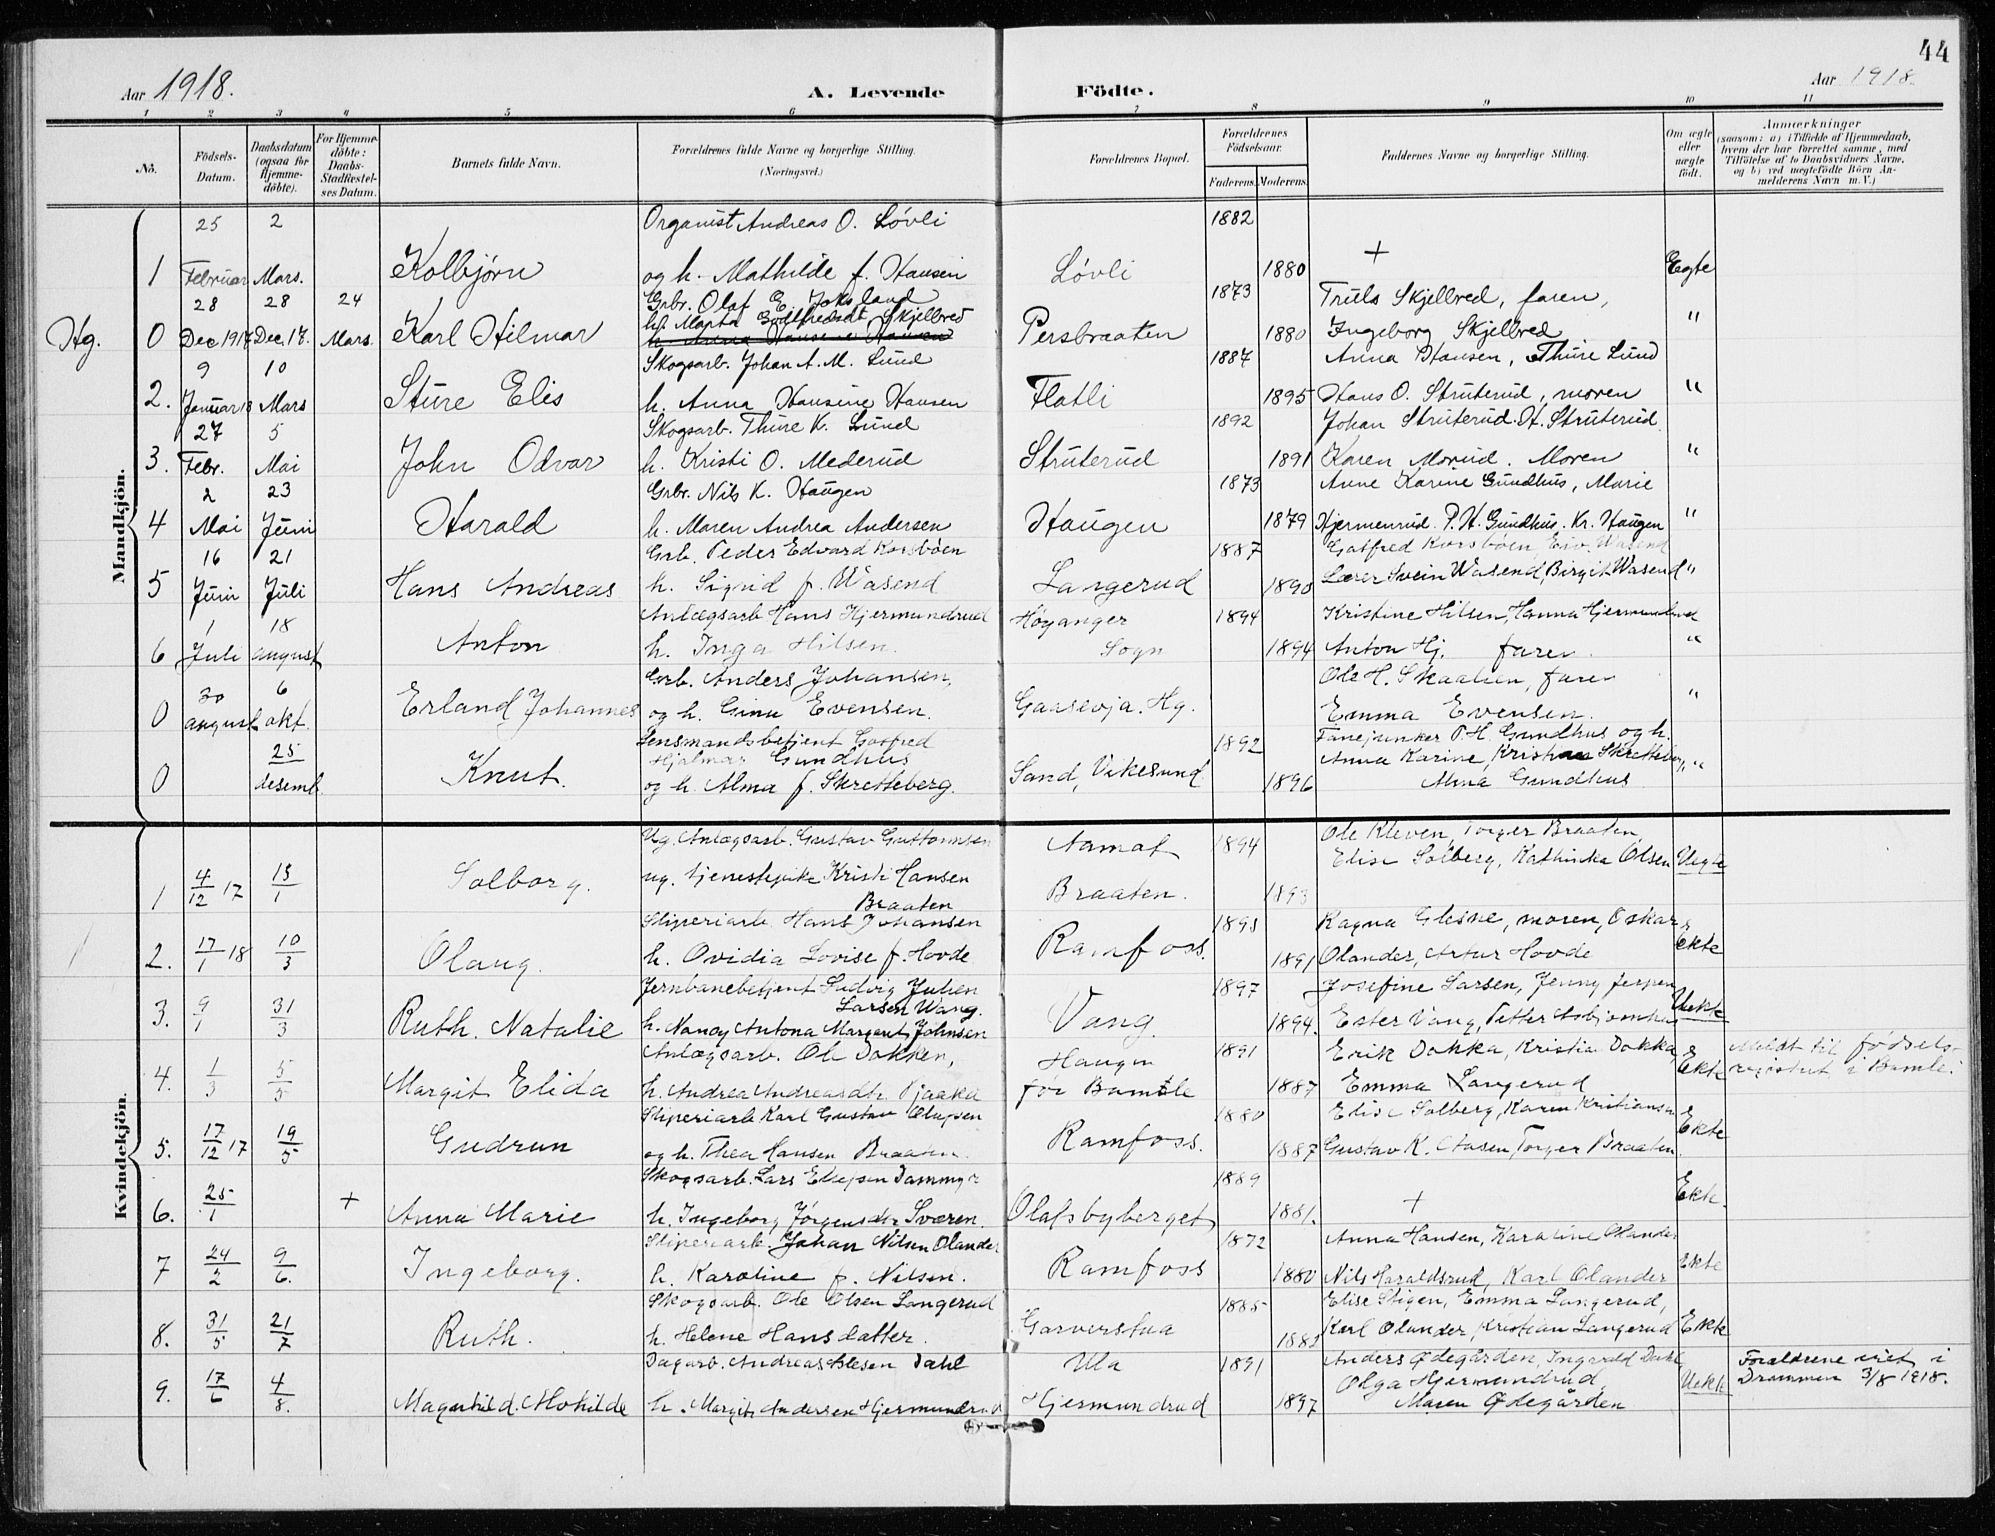 44
Aar 1918. A. Levende Födte. Aar 1918.
1 2 3 4 5 6 7 8 9 10 11
No.
Födsels-Datum.
Daabsdatum (ogsaa for Hjemme-döbte).
For Hjemme-döbte: Daabs-Stadfæstel-ses Datum.
Barnets fulde Navn.
Forældrenes fulde Navne og borgerlige Stilling. (Næringsvei.)
Forældrenes Bopæl.
Forældrenes Födselsaar.
Faderens. Moderens.
Faddernes Navne og borgerlige Stilling.
Om ægte eller uægte födt.
Anmærkninger (saasom: a) i Tilfælde af Hjemmedaab, hvem der har forrettet samme, med Tilföielse af to Daabsvidners Navne, og b) ved uegtefödte Börn An-melderens Navn m. V.)
Mandkjön.
25 2 Organist Andreas O. Lövli 1882
1 Februar Mars. Kolbjörn og h. Mathilde f. Hansen Lövli 1880 + Egte
28 28 24 Grbr. Olaf E. Joksland 1873 Truls Skjellred, faren,
Hg. 0 Dec 1917 Dec 17. Mars. Karl Hilmar h. Marta Gotfredsdt Skjelbred Persbraaten 1880 Ingeborg Skjelbred "
h. Anna Hansine Hansen
9 10 Skogsarb. Johan A. M. Lund 1887 Anna Hansen, Thure Lund
2. Januar 18 Mars Sture Elis h. Anna Hansine Hansen Flatli 1895 Hans O. Struterud, moren "
27 5 Skogsarb. Thure K. Lund 1892 Johan Struterud. H. Struterud
3. Febr. Mai John Odvar h. Kristi O. Mederud Struterud 1891 Karen Morud. Moren "
2 23 Grbr. Nils K. Haugen 1873 Anne Karine Gundhus, Marie
4 Mai Juni Harald h. Maren Andrea Andersen Haugen 1879 Hjermenrud. P. H. Gundhus. Kr. Haugen "
16 21 Grb. Peder Edvard Korsböen 1887 Gotfred Korsböen, Eiv. Wasend
5 Juni Juli Hans Andreas h. Sigrid f. Wasend Langerud 1890 Lærer Svein Wasend, Birgit Wasend "
1 18 Anlægsarb Hans Hjermundrud Höyanger 1894 Kristine Hilsen, Hanna Hjermundrud
6 Juli august Anton h. Inga Hilsen. Sogn 1894 Anton Hj. faren. "
30 6 Grb. Anders Johansen, Ole H. Skaalien, faren
0 august okt. Erland Johannes og h. Gina Evensen. Gaasevja. Hg. Emma Evensen. "
25 Lensmandsbetjent Gotfred 1892 Fanejunker P. H. Gundhus og h.
Hjalmar Gundhus Anna Karine, Kristian Skretteberg, "
0 desemb. Knut. og h. Alma f. Skretteberg. Sand, Vikesund 1896 Alma Gundhus
Kvindekjön.
Ug. Anlægsarb. Gustav Guttormsen Aamot 1894 Ole Kleven, Torger Braaten,
1 4/12 17 13/1 Solborg. ug. tjenestepike Kristi Hansen Braaten. 1893 Elise Solberg, Kathinka Olsen Uegte
Braaten
Sliperiarb. Hans Johansen 1893 Ragna Glesne, moren, Oskar
2. 17/1 18 10/3 Olaug. h. Ovidia Lovise f. Hovde Ramfoss. 1891 Olander, Artur Hovde Ekte
Jernbanebetjent Ludvig Julien 1897 Josefine Larsen, Jenny
Larsen Wang.
3. 9/1 31/3 Ruth. Natalie h. Nancy Antona Margaret Johnsen Vang. 1894. Ester Vang, Petter Uekte
Anlægsarb. Ole Dokken, Haugen 1891 Erik Dokka, Kristian Dokka Meldt til födsels-
4. 1/3 5/5 Margit Elida h. Andrea Andreasdtr. för Bamble 1887 Emma Langerud Ekte registret i Bamle.
Sliperiarb Karl Gustav Olufsen 1880 Elise Solberg, Karen Kristiansen
5. 17/12 17 19/5 Gudrun og h. Thea Hansen Braaten. Ramfoss. 1887 Gustav K. Aasen, Torger Braaten. Ekte
Skogsarb. Lars Ellefsen Dammyr 1889
6. 25/1 + Anna Marie h. Ingeborg Jörgensdtr Sværen. Olafsbyberget 1881. + Ekte.
Sliperiarb. Johan Nilsen Olander 1872 Anna Hansen, Karoline Olander
7 24/2 9/6. Ingeborg. h. Karoline f. Nilsen. Ramfoss 1880 Nils Haraldsrud, Karl Olander Ekte
Skogsarb. Ole Olsen Langerud 1885 Elise Stigen, Emma Langerud,
8. 31/5 21/7 Ruth. h. Helene Hansdatter. Garverstua 1883 Karl Olander, Kristian Langerud Ekte
Dagarb. Andreas Dahl Ula 1891 Anders Ødegården, Ingvald Dahl Forældrene viet i
Olga Hjermundrud Drammen 3/8 1918.
9. 17/6 4/8. Magnhild Mohilde h. Margit Andersen Hjermundrud Hjermundrud 1897 Maren Ødegården Uekte